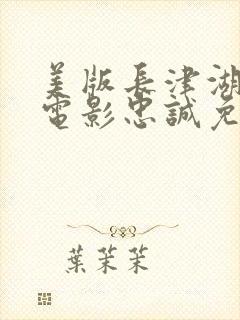 美版長津湖
電影忠誠免
葉茉茉